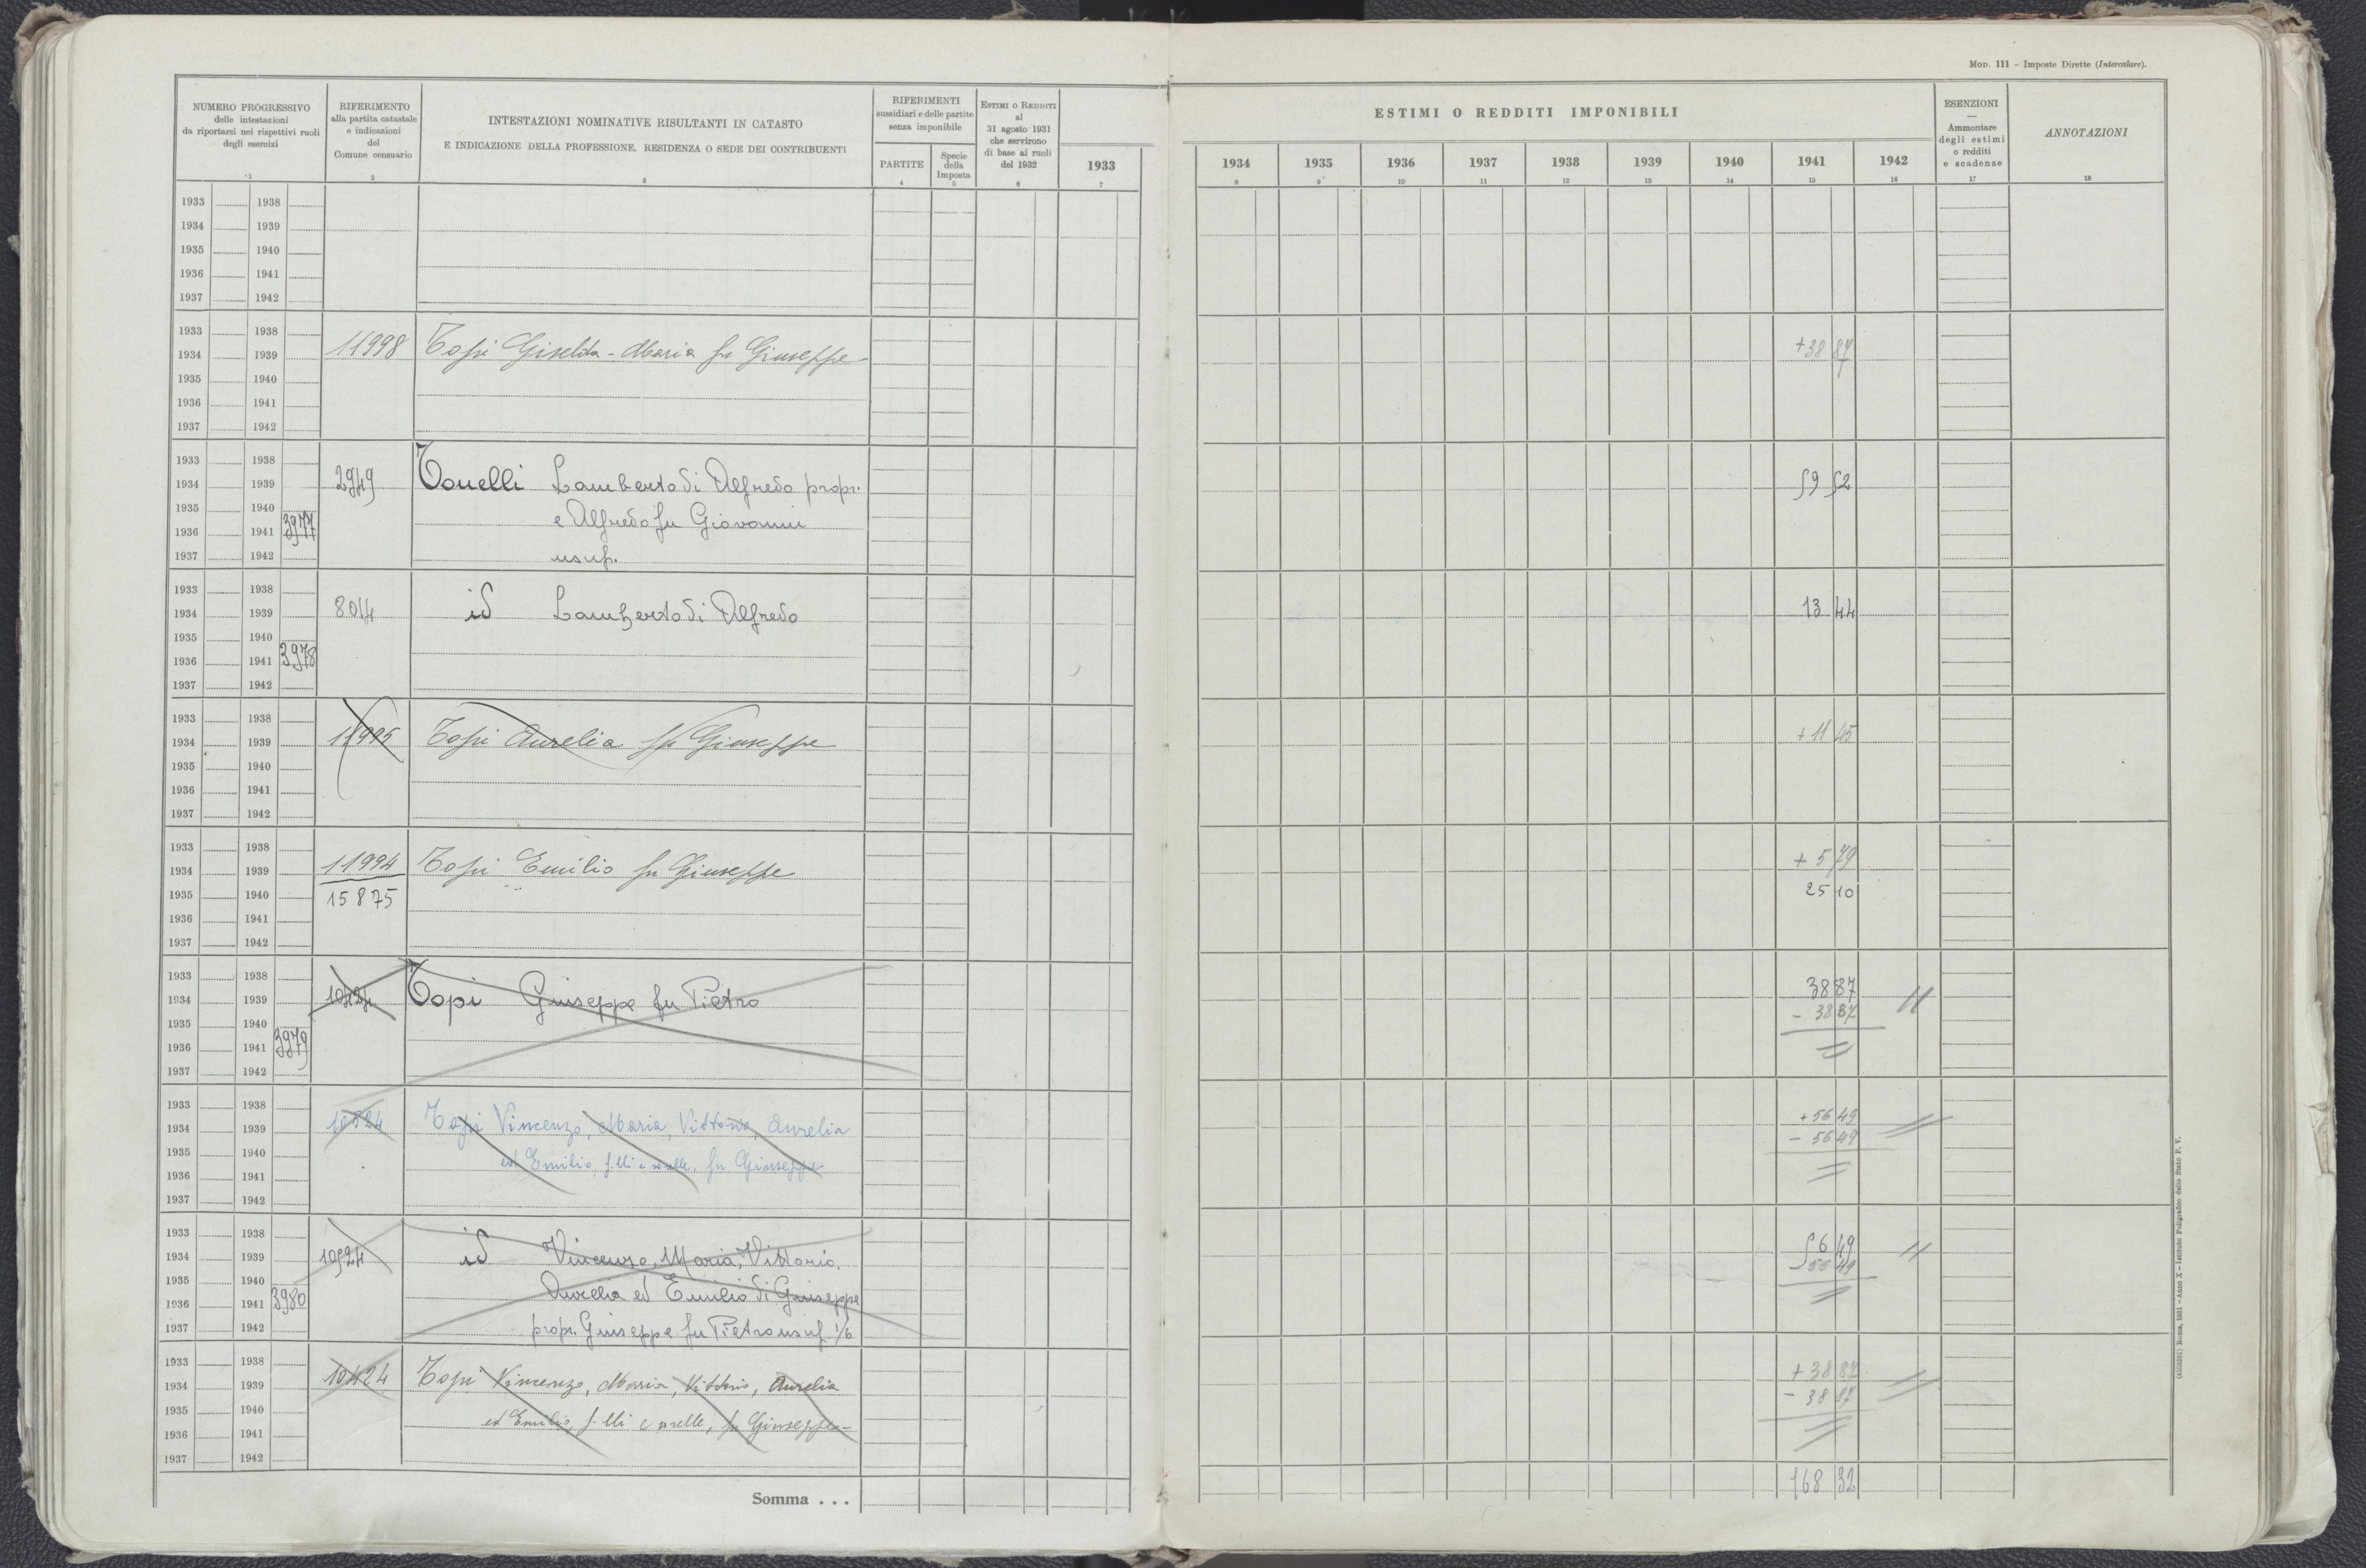 MOD. 111 - Imposte Dirette (Intercalare).
NUMERO PROGRESSIVO
delle intestazioni
da riportarsi nei rispettivi ruoli
degli esercizi
1
RIFERIMENTO
alla partita catastale
e indicazioni
del
Comune censuario
2
INTESTAZIONI NOMINATIVE RISULTANTI IN CATASTO
E INDICAZIONE DELLA PROFESSIONE, RESIDENZA O SEDE DEI CONTRIBUENTI
3
RIFERIMENTI
sussidiari e delle partite
senza imponibile
PARTITE
4
Specie
della
Imposta
5
ESTIMI O REDDITI
al
31 agosto 1931
che servirono
di base ai ruoli
del 1932
6
1933
7
ESTIMI O REDDITI IMPONIBILI
1934 1935 1936 1937 1938 1939 1940 1941 1942
8 9 10 11 12 13 14 15 16
ESENZIONI
—
Ammontare
degli estimi
o redditi
e scadenze
17
ANNOTAZIONI
18
1933 1938
1934 1939
1935 1940
1936 1941
1937 1942
1933 1938
1934 1939 11998 Topi Giselda - Maria fu Giuseppe +38 87
1935 1940
1936 1941
1937 1942
1933 1938
1934 1939 2949 Tonelli Lamberto di Alfredo propr. 59 52
1935 1940 e Alfredo fu Giovanni
1936 1941 3977
1937 1942 usuf.
1933 1938
1934 1939 8014 id Lamberto di Alfredo 13 44
1935 1940
1936 1941 3978
1937 1942
1933 1938
1934 1939 11995 Topi Aurelia fu Giuseppe + 11 45
1935 1940
1936 1941
1937 1942
1933 1938
1934 1939 11994 Topi Emilio fu Giuseppe + 5 79
1935 1940 15875 25 10
1936 1941
1937 1942
1933 1938
1934 1939 10424 Topi Giuseppe fu Pietro 38 87
1935 1940 - 38 87
1936 1941 3979
1937 1942
1933 1938 + 56 49
1934 1939 10524 Topi Vincenzo, Maria, Vittorio, Aurelia - 56 49
1935 1940 ed Emilio, f.lli e sorelle, fu Giuseppe
1936 1941
1937 1942
1933 1938
1934 1939 10524 id Vincenzo, Maria, Vittorio, 56 49
1935 1940 Aurelia ed Emilio di Giuseppe - 56 49
1936 1941 3980
1937 1942 propr. Giuseppe fu Pietro usuf. 1/6
1933 1938 + 38 87
1934 1939 10424 Topi Vincenzo, Maria, Vittorio, Aurelia - 38 87
1935 1940 ed Emilio, f.lli e sorelle, fu Giuseppe
1936 1941
1937 1942
Somma . . . 168 32